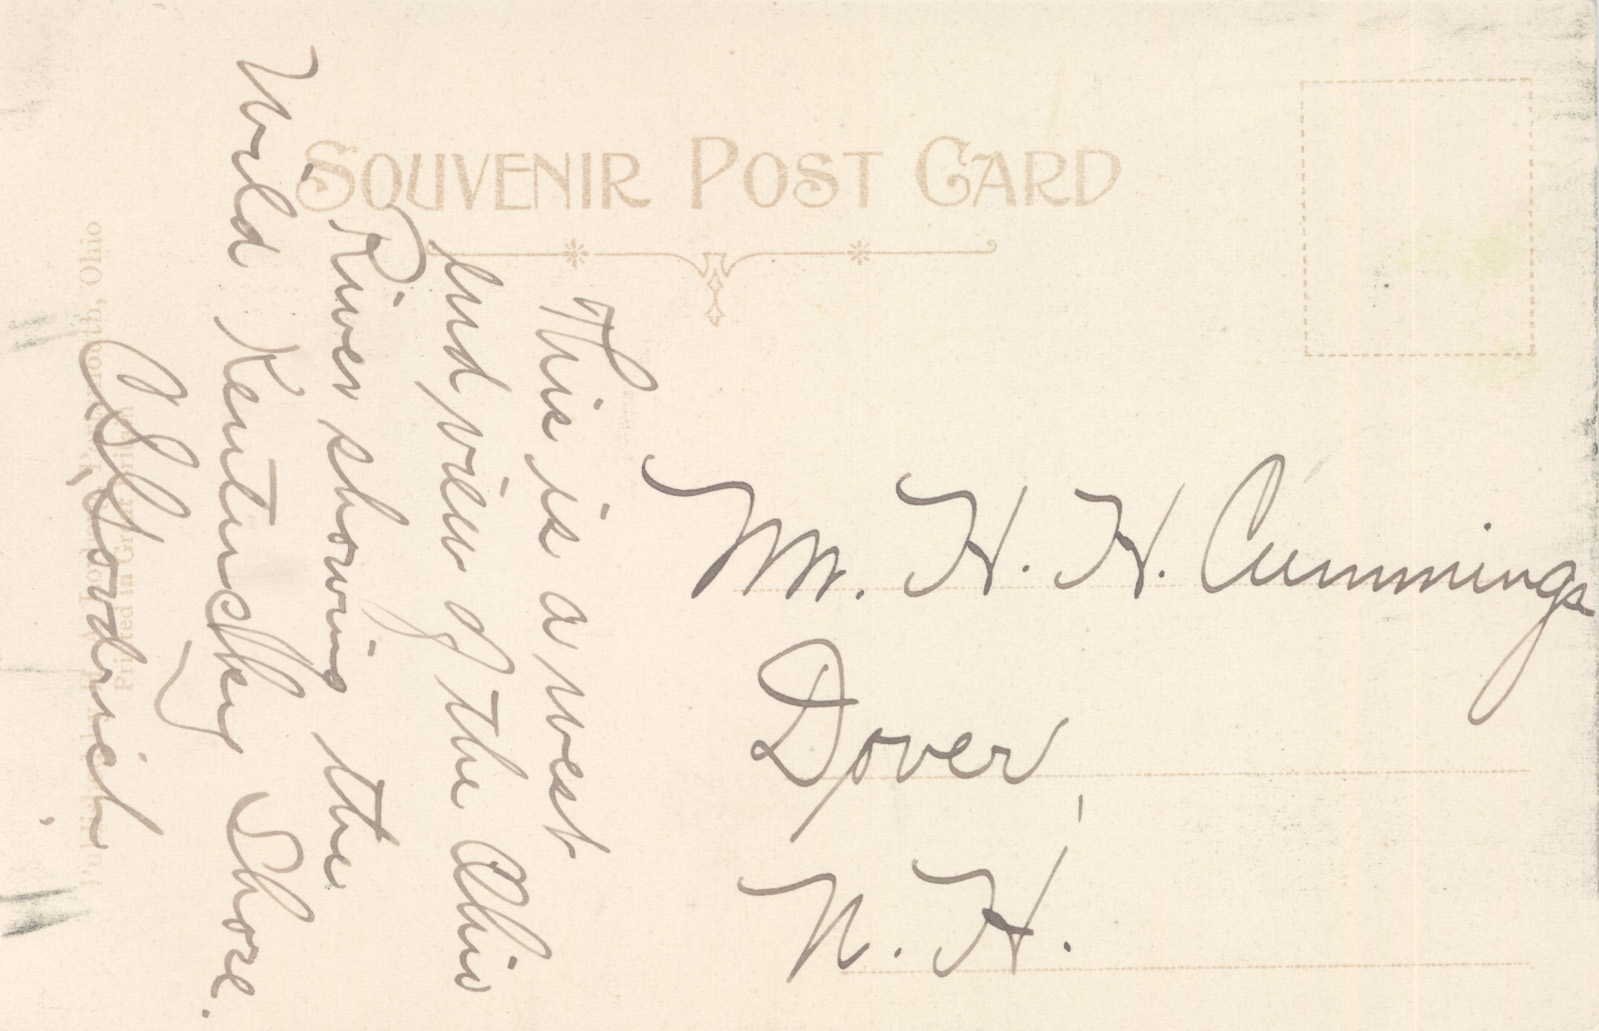 SOUVENIR POST CARD
This is a west
end view of the Ohio
River showing the
Wild Kentucky Shore.
Goodrich
Mr. H. H. Cummings
Dover,
N. H.
Portsmouth, Ohio
Printed in Germany